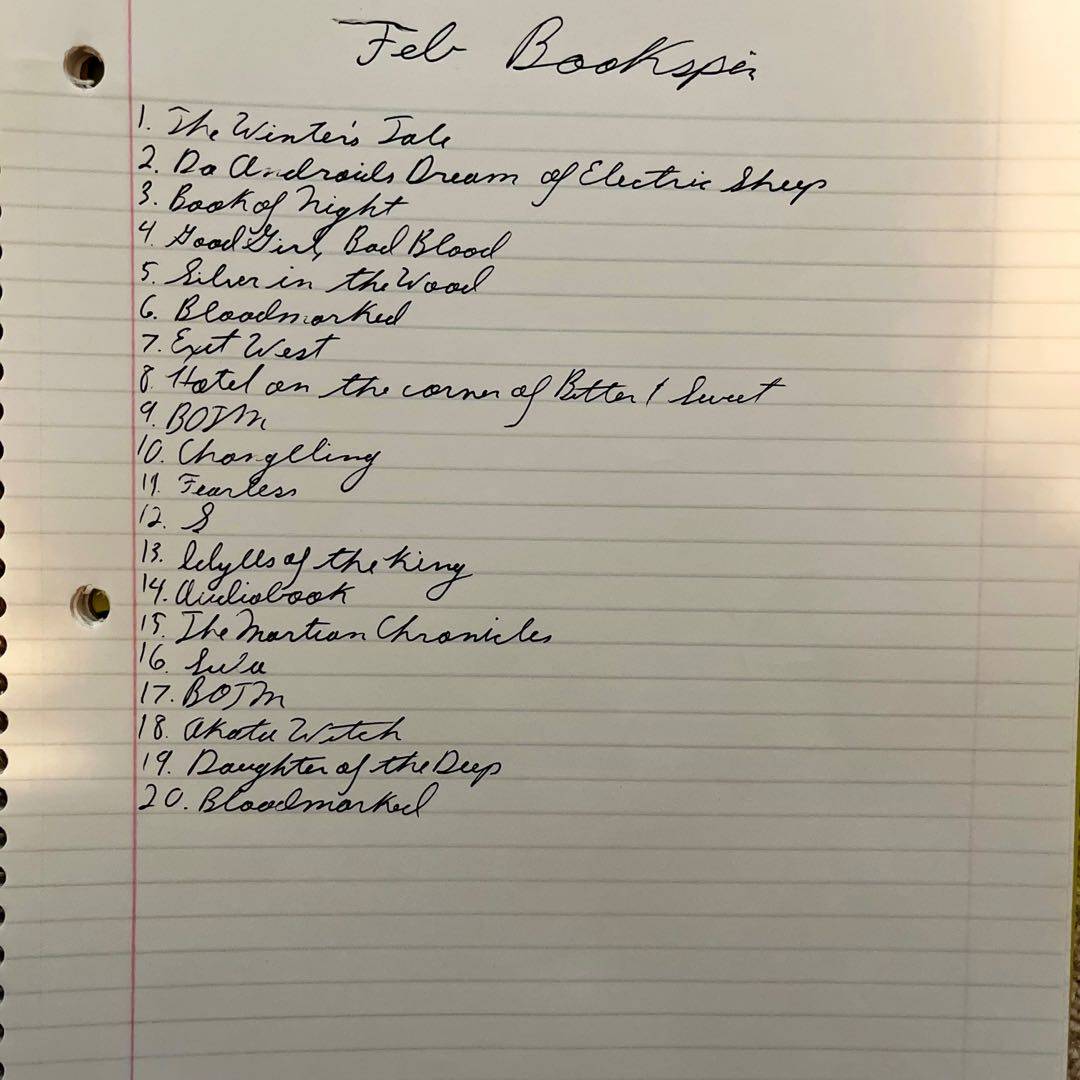 Feb Bookspin
1. The Winter's Tale
2. Do Androids Dream of Electric Sheep
3. Book of Night
4. Good Girl, Bad Blood
5. Silver in the Wood
6. Bloodmarked
7. Exit West
8. Hotel on the corner of Bitter & Sweet
9. BOTM
10. Changlling
11. Fearless
12. S
13. Idylls of the King
14. Audiobook
15. The Martian Chronicles
16.
17. BOTM
18. Akata Witch
19. Daughter of the Deep
20. Bloodmarked